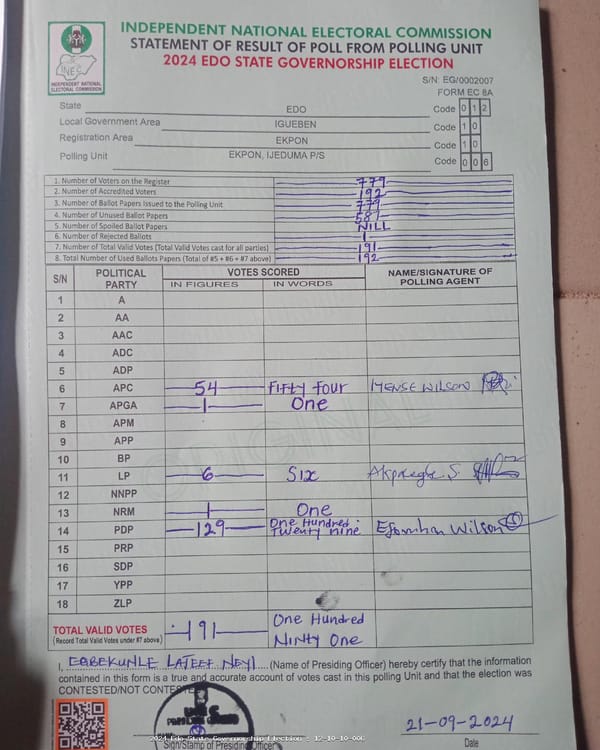 INDEPENDENT NATIONAL ELECTORAL COMMISSION
STATEMENT OF RESULT OF POLL FROM POLLING UNIT
2024 EDO STATE GOVERNORSHIP ELECTION
INEC
INDEPENDENT NATIONAL ELECTORAL COMMISSION
S/N: EG/0002007
FORM EC 8A
State EDO Code 0 1 2
Local Government Area IGUEBEN Code 1 0
Registration Area EKPON Code 1 0
Polling Unit EKPON, IJEDUMA P/S Code 0 0 6
1. Number of Voters on the Register 779
2. Number of Accredited Voters 192
3. Number of Ballot Papers Issued to the Polling Unit 779
4. Number of Unused Ballot Papers 587
5. Number of Spoiled Ballot Papers NILL
6. Number of Rejected Ballots 1
7. Number of Total Valid Votes (Total Valid Votes cast for all parties) 191
8. Total Number of Used Ballots Papers (Total of #5 + #6 + #7 above) 192
S/N POLITICAL PARTY VOTES SCORED NAME/SIGNATURE OF POLLING AGENT
IN FIGURES IN WORDS
1 A
2 AA
3 AAC
4 ADC
5 ADP
6 APC 54 FIFTY FOUR MENSE WILSON
7 APGA 1 One
8 APM
9 APP
10 BP
11 LP 6 SIX
12 NNPP
13 NRM 1 One
14 PDP 129 One Hundred Twenty nine Wilson
15 PRP
16 SDP
17 YPP
18 ZLP
TOTAL VALID VOTES 191 One Hundred Ninty One
(Record Total Valid Votes under #7 above)
I, LATEEF (Name of Presiding Officer) hereby certify that the information
contained in this form is a true and accurate account of votes cast in this polling Unit and that the election was
CONTESTED/NOT CONTESTED
2024 Edo State Governorship Election : 12-10-10-006
Sign/Stamp of Presiding Officer
21-09-2024
Date